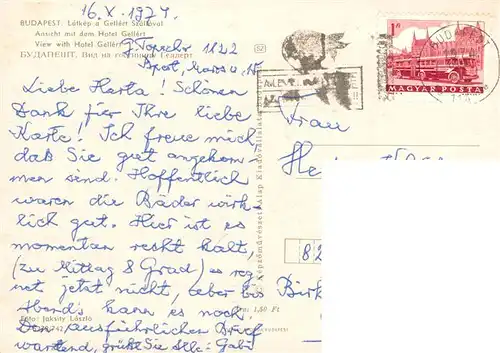 16. X. 1974.
BUDAPEST. Látkép a Gellért Szállóval
Ansicht mit dem Hotel Gellért
View with Hotel Gellért
БУДАПЕШТ. Вид на гостиницу Геллерт
1822
52
1 Ft
MAGYAR POSTA
Liebe Herta! Schönen
Dank für Ihre liebe
Karte! Ich freue mich
daß Sie gut angekom-
men sind. Hoffentlich
waren die Bäder wirk-
lich gut. Hier ist es
momentan recht kalt,
(zu Mittag 8 Grad) es reg
net jetzt nicht, aber bis
Abends kann es noch.
Den ausführlichen Brief
wartend, grüßt Sie Alle: Gabi
Foto: Jaksity László
Képzőművészeti Alap Kiadóvállalata
Ára: 1,50 Ft
Frau
82
Birk